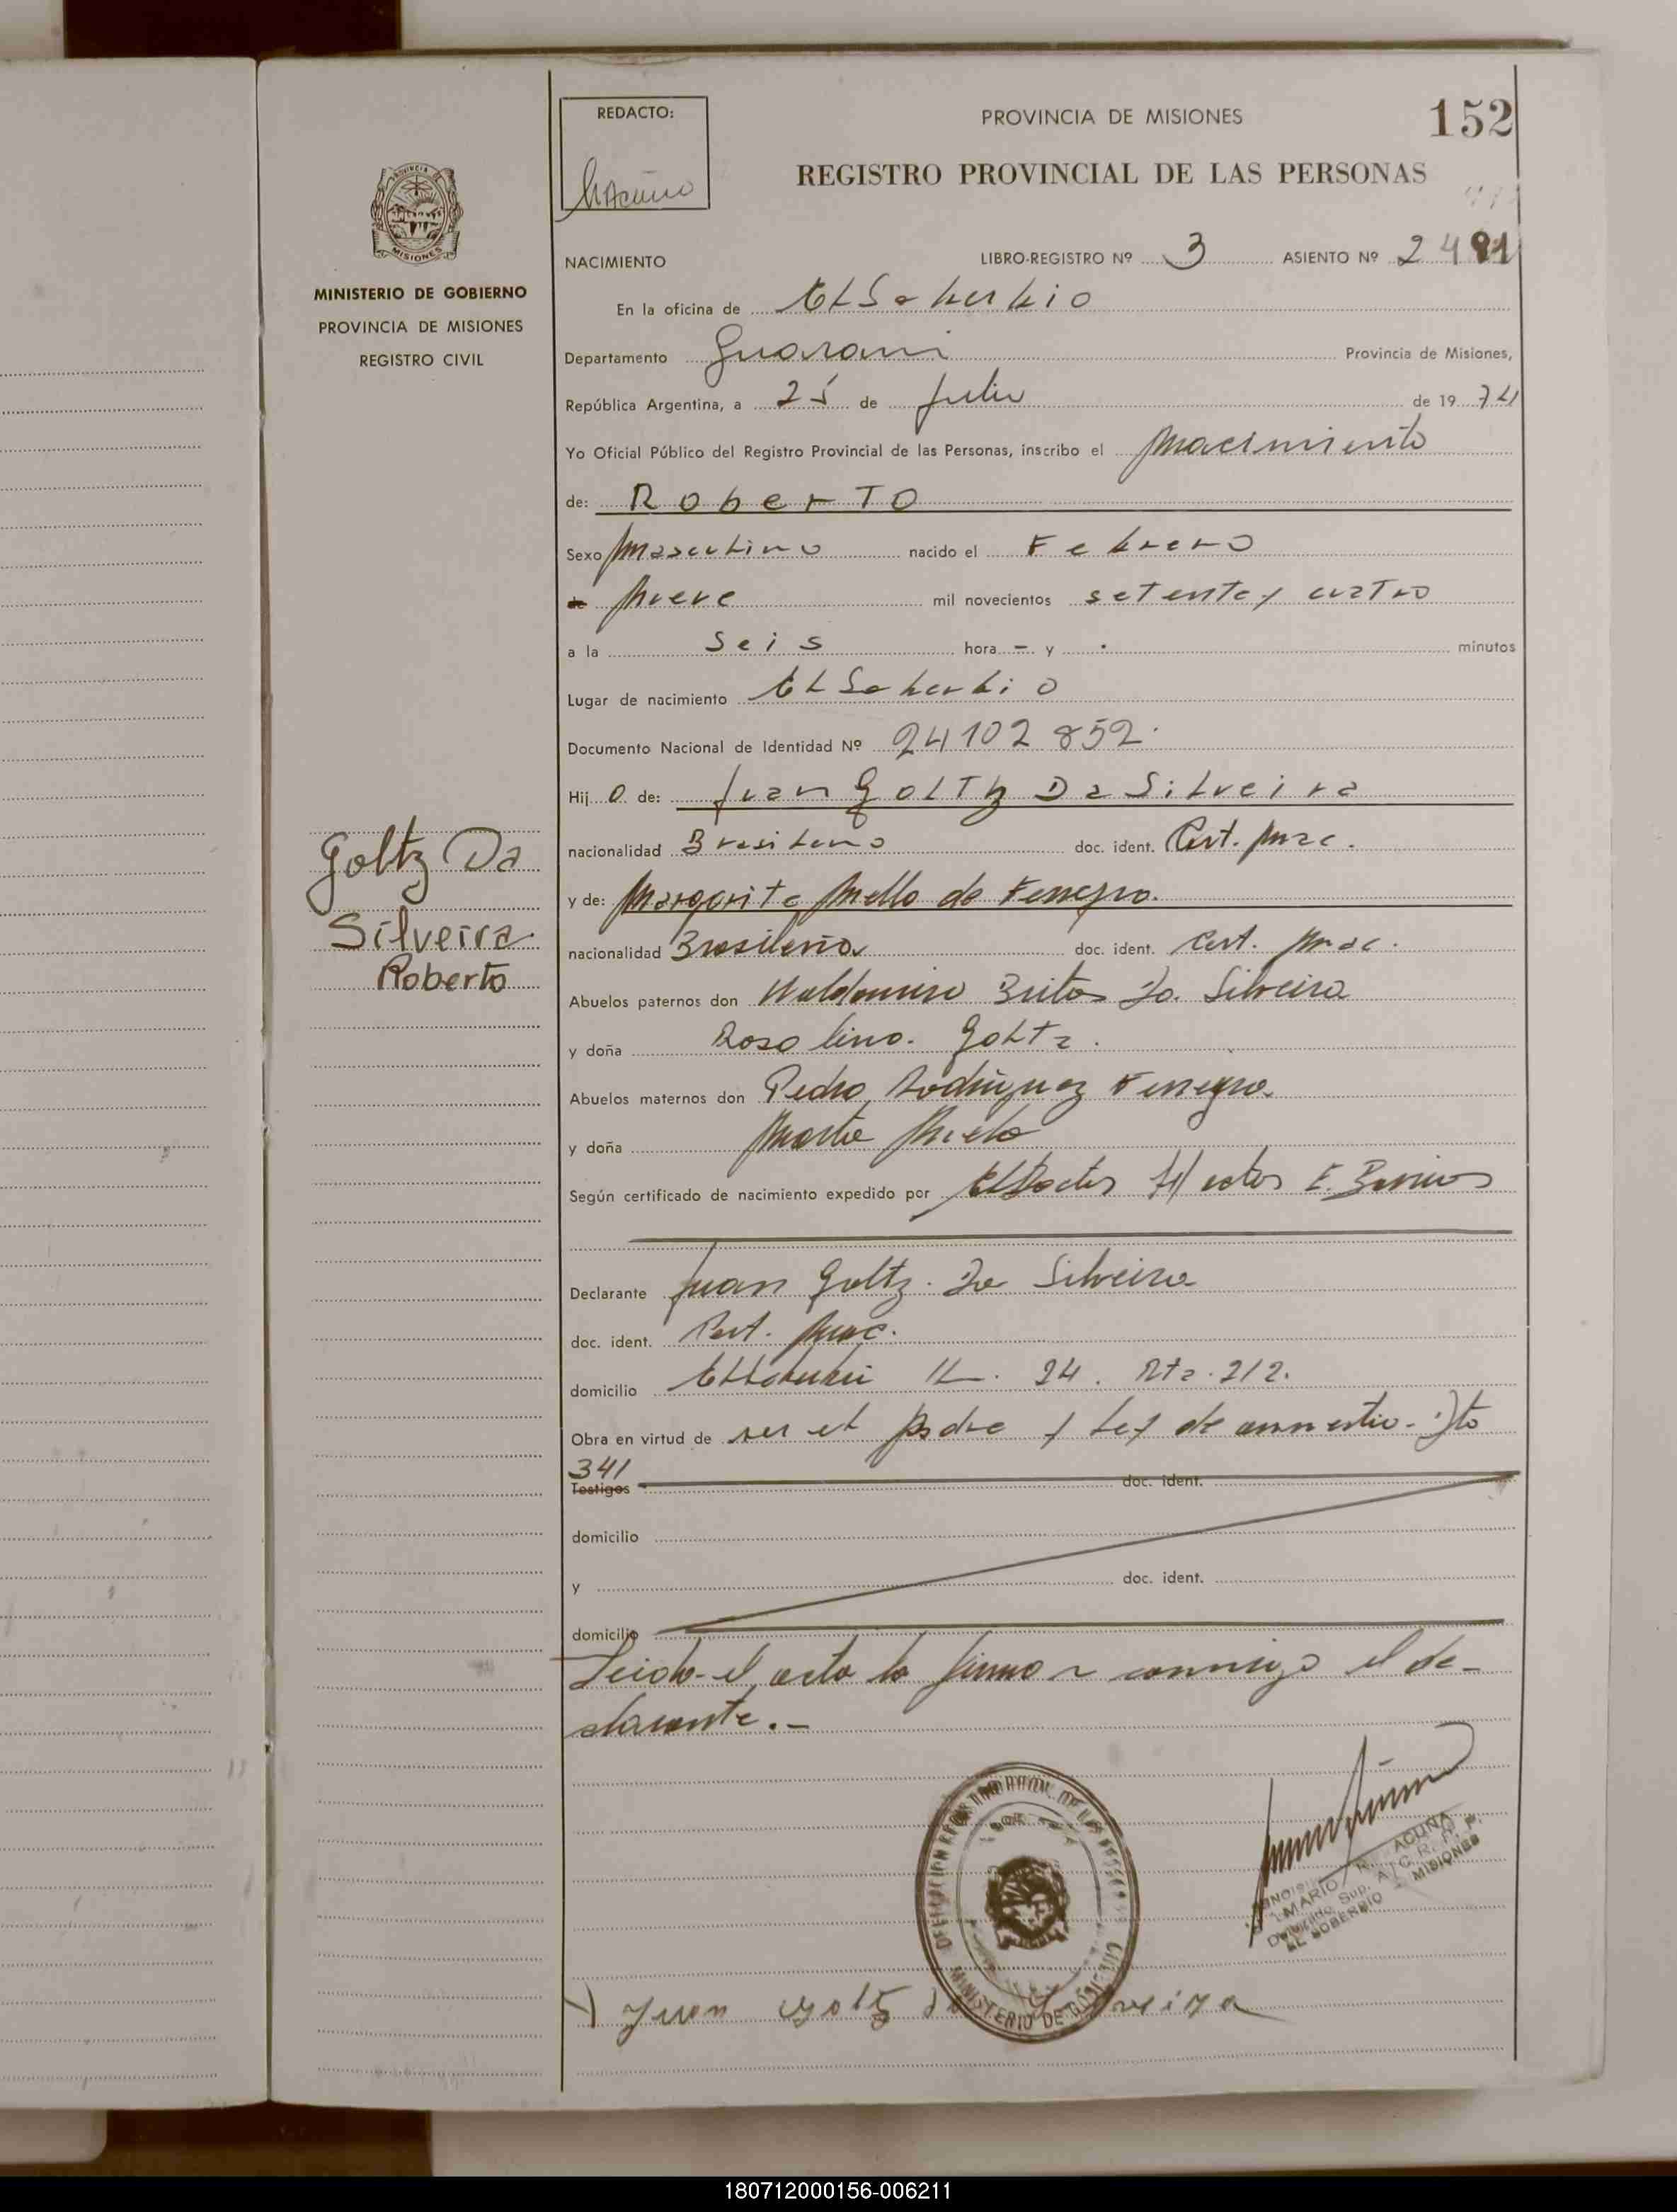 REDACTO:
PROVINCIA DE MISIONES
152
REGISTRO PROVINCIAL DE LAS PERSONAS
MISIONES
MINISTERIO DE GOBIERNO
PROVINCIA DE MISIONES
REGISTRO CIVIL
NACIMIENTO
LIBRO-REGISTRO Nº 3 ASIENTO Nº 24
En la oficina de El Soberbio
Departamento Guarani Provincia de Misiones,
República Argentina, a 25 de Julio de 19 74
Yo Oficial Público del Registro Provincial de las Personas, inscribo el Nacimiento
de: Roberto
Sexo Masculino nacido el Febrero
de Nueve mil novecientos setenta y cuatro
a la Seis hora - y - minutos
Lugar de nacimiento El Soberbio
Documento Nacional de Identidad Nº 24102852.
Hij o de: Juan Goltz Da Silveira
nacionalidad Brasileño doc. ident. Cert. Nac.
Goltz Da
Silveira
Roberto
y de: Margarita Mello de
nacionalidad Brasileña doc. ident. Cert. Nac.
Abuelos paternos don Waldomiro Britos Da Silveira
y doña Rosalina Goltz.
Abuelos maternos don Pedro Rodriguez
y doña Marta Melo
Según certificado de nacimiento expedido por El Doctor Hector E. Barrios
Declarante Juan Goltz Da Silveira
doc. ident. Cert. Nac.
domicilio El Soberbio K. 24. Rta. 212.
Obra en virtud de ser el padre y Ley de amnestia. Dto
341
Testigos doc. ident.
domicilio
y doc. ident.
domicilio
Leida el acta la firma conmigo el de-
clarante.-
MINISTERIO DE GOBIERNO
MARIO ACUÑA
EL SOBERBIO - MISIONES
Juan Goltz da Silveira
180712000156-006211